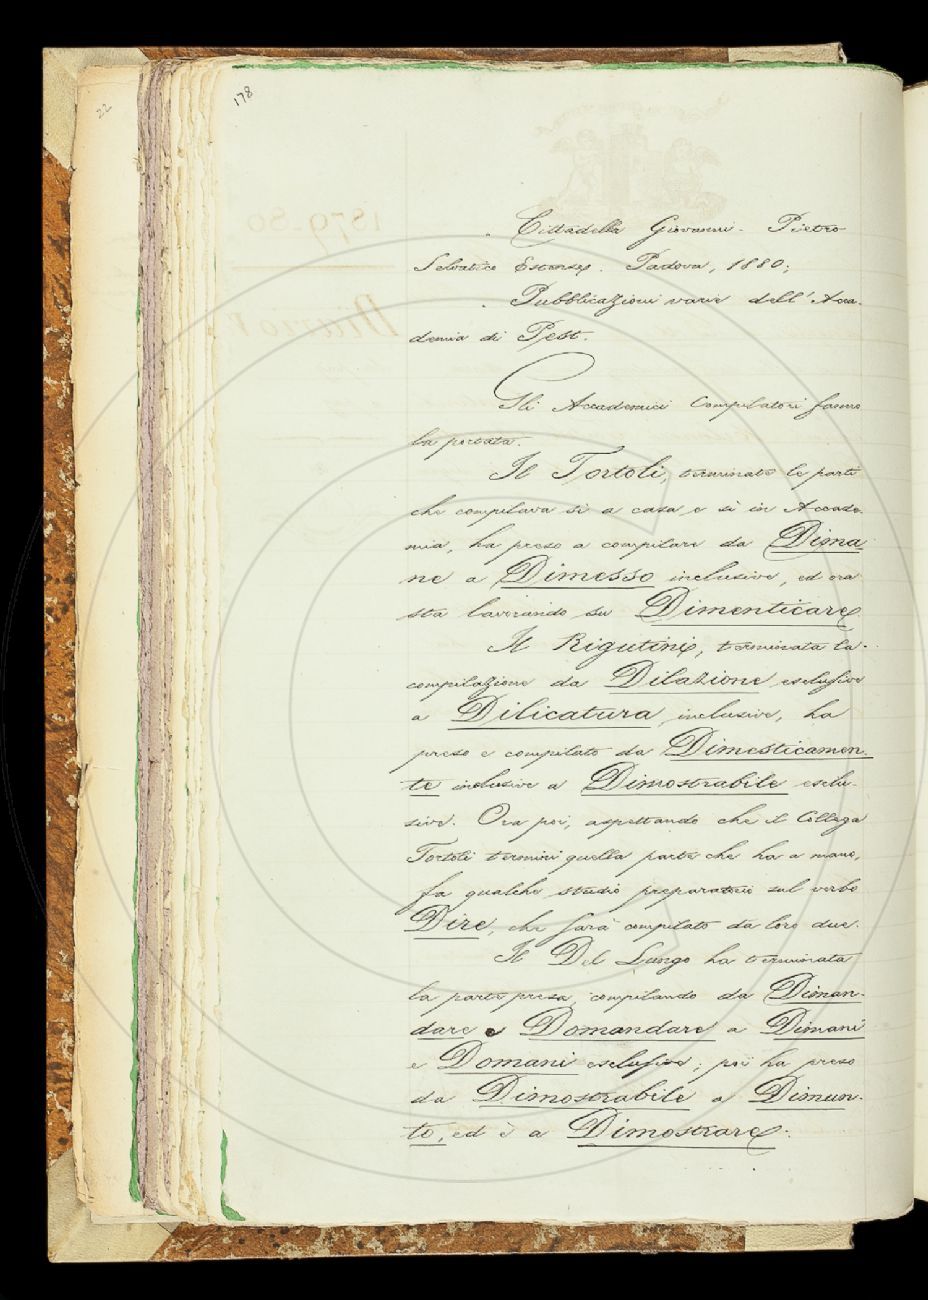 22
178
Cittadella Giovanni. Pietro
Selvatico Estense. Padova, 1880;
Pubblicazioni varie dell'Acca-
demia di Pest.
Gli Accademici Compilatori fanno
la portata.
Il Tortoli, terminate le parti
che compilava sì a casa e sì in Accade-
mia, ha preso a compilare da Dima-
ne a Dimesso inclusive, ed ora
sta lavorando su Dimenticare.
Il Rigutini, terminata la
compilazione da Dilazione esclusive
a Dilicatura inclusive, ha
preso e compilato da Dimesticamen-
te inclusive a Dimostrabile esclu-
sive. Ora poi, aspettando che il Collega
Tortoli termini quella parte che ha a mano,
fa qualche studio preparatorio sul verbo
Dire, che sarà compilato da loro due.
Il Del Lungo ha terminata
la parte presa, compilando da Diman-
dare e Domandare a Dimani
e Domani esclusive; poi ha preso
da Dimostrabile a Dimun-
to, ed è a Dimostrare.
1879-80
Diario